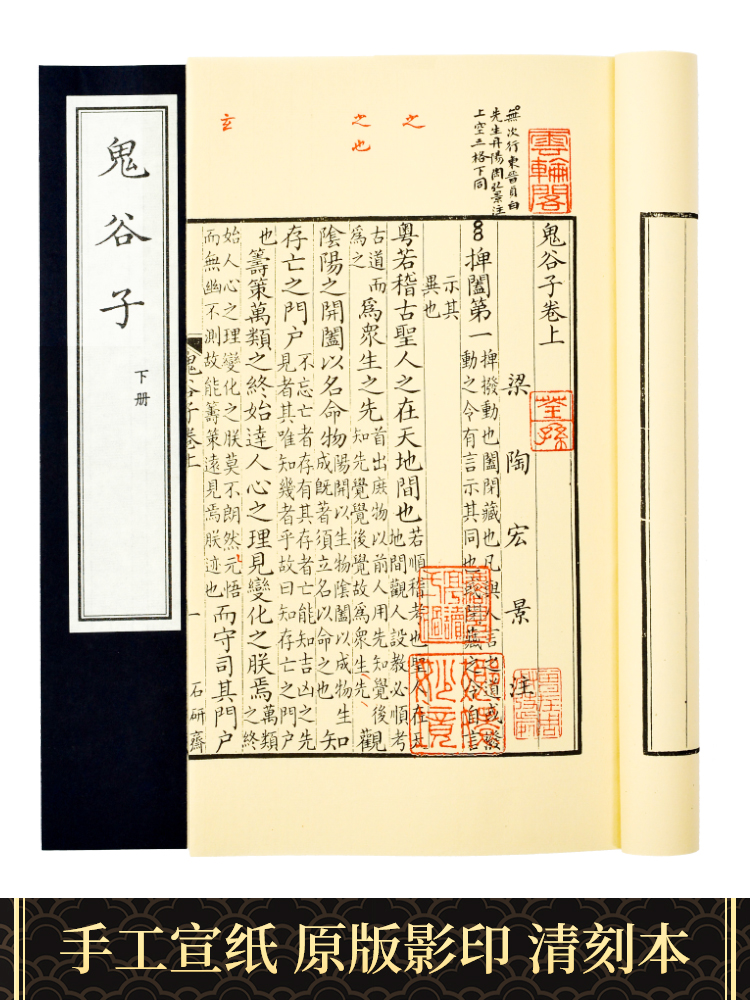 鬼谷子
下册
雲輪閣
無次行東晉貞白
先生丹陽陶弘景注
上空五格下同
之
之也
玄
鬼谷子卷上
荃孫
梁陶宏景注
捭闔第一
捭撥動也闔閉藏也凡與人言之道或撥
動之令有言示其同也或閉藏之令自言
示其
異也
粤若稽古聖人之在天地間也
若順稽考也聖人在天
地間觀人設教必順考
古道而
爲之
爲衆生之先
首出庶物以前人用先知覺後
知先覺覺後覺故爲衆生先
觀
陰陽之開闔以名命物
陽開以生物陰闔以成物生
成旣著須立名以命之也
知
存亡之門户
不忘亡者存有其存者亡能知吉凶之先
見者其唯知幾者乎故曰知存亡之門户
也
籌策萬類之終始達人心之理見變化之朕焉
萬類
之終
始人心之理變化之朕莫不朗然元悟
而無幽不測故能籌策遠見焉朕迹也
而守司其門户
鬼谷子卷上
一
石研齋
手工宣纸 原版影印 清刻本